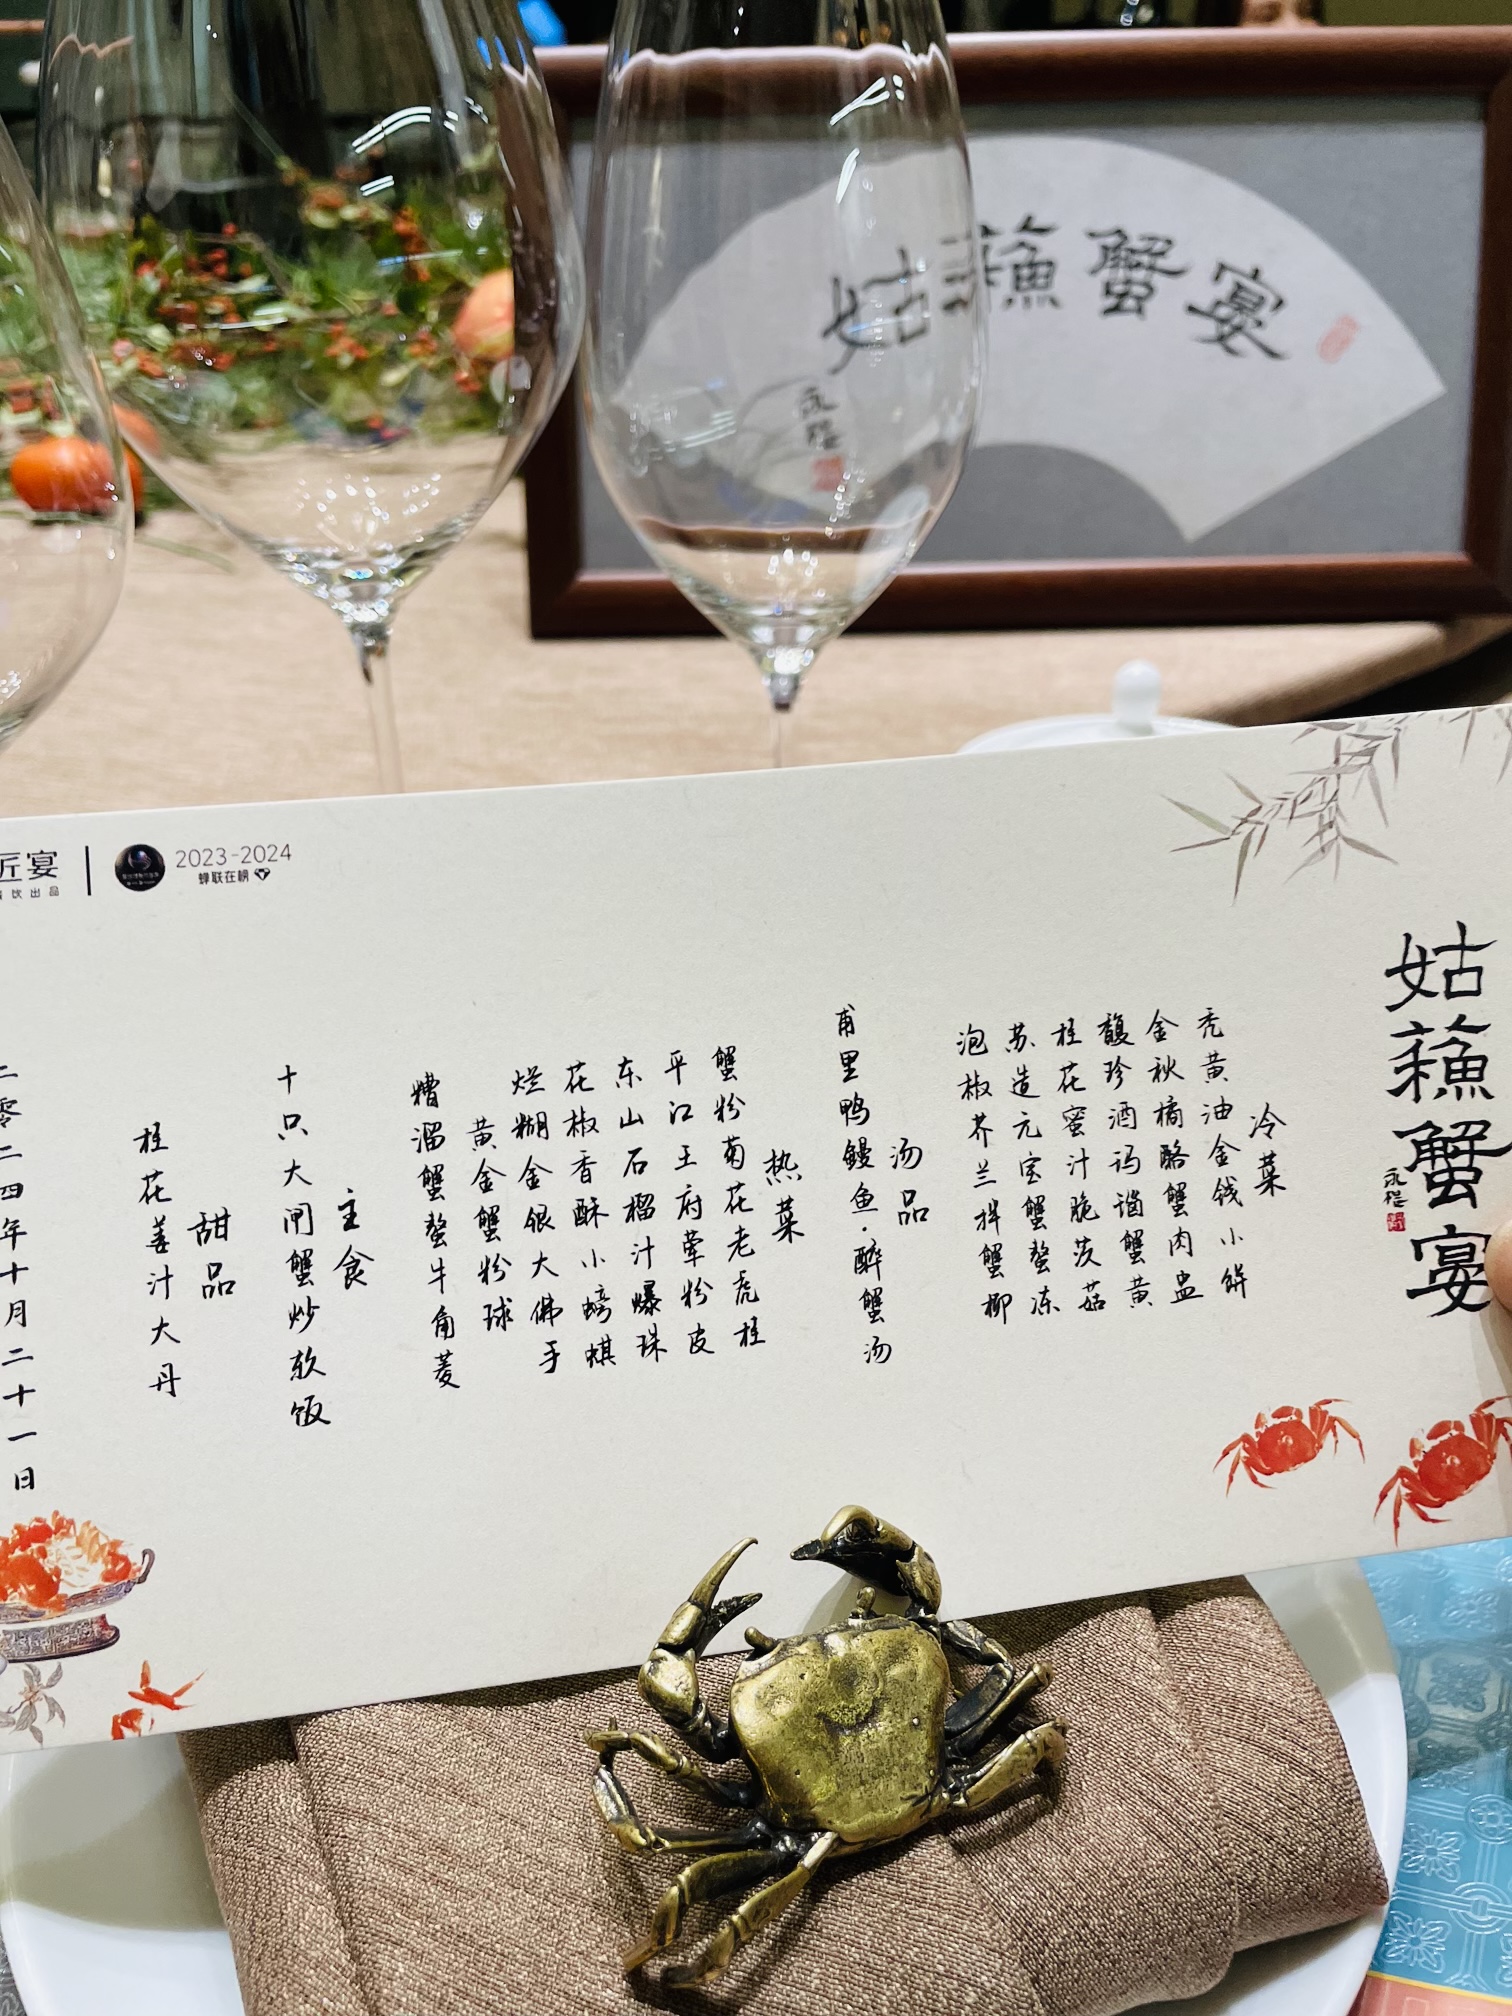 姑蘓蟹宴
永程
匠宴
饮出品
2023-2024
蝉联在榜
姑蘓蟹宴
永程
冷菜
秃黄油金钱小饼
金秋橘酪蟹肉盅
馥珍酒玛瑙蟹黄
桂花蜜汁脆茨菇
苏造元宝蟹螯冻
泡椒芥兰拌蟹柳
汤品
甫里鸭鳗鱼·醉蟹汤
热菜
蟹粉菊花老虎桂
平江王府荤粉皮
东山石榴汁爆珠
花椒香酥小螃蜞
烂糊金银大佛手
黄金蟹粉球
糟溜蟹螯牛角菱
主食
十只大闸蟹炒软饭
甜品
桂花姜汁大丹
二零二四年十月二十一日